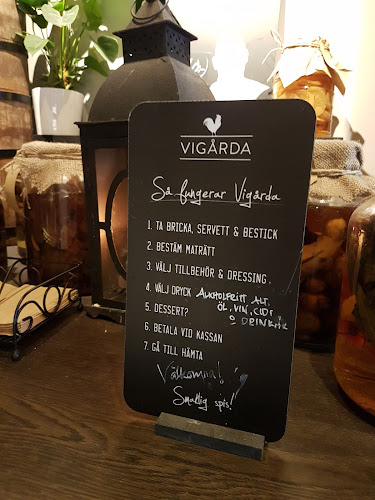 VIGÅRDA
Så fungerar Vigårda
1. TA BRICKA, SERVETT & BESTICK
2. BESTÄM MATRÄTT
3. VÄLJ TILLBEHÖR & DRESSING.
4. VÄLJ DRYCK ALKOHOLFRITT ALT.
ÖL, VIN, CIDER
5. DESSERT?
& DRINKAR
6. BETALA VID KASSAN
7. GÅ TILL HÄMTA
Välkomna!
Smaklig spis!